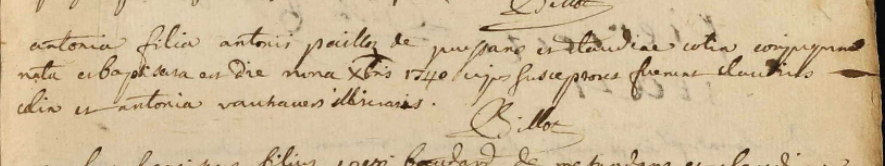 Billot
antonia filia antonii pailloz de pussans et claudiae colin conjugum
nata et baptisata est die nona Xbris 1740 cujus susceptores fuerunt claudius
colin et antonia illiteratis.
Billot
filius boudard de et